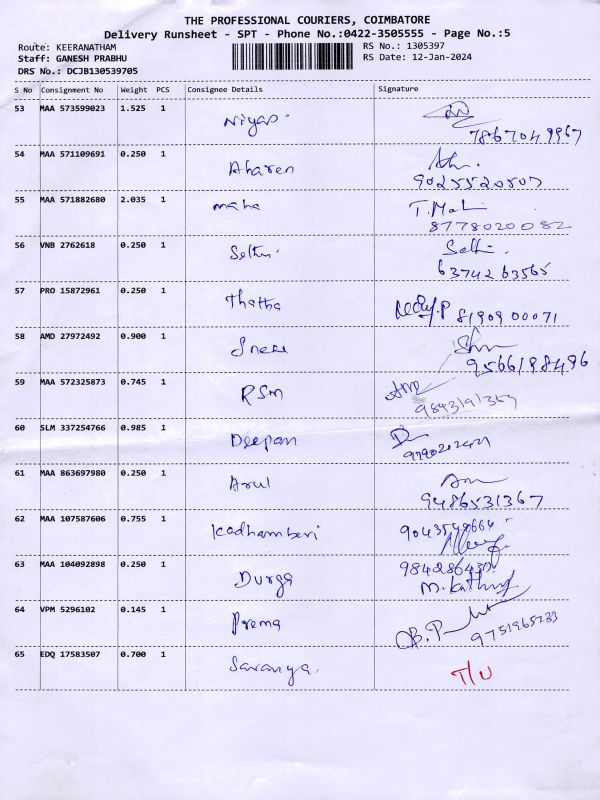 THE PROFESSIONAL COURIERS, COIMBATORE
Delivery Runsheet - SPT - Phone No.:0422-3505555 - Page No.:5
Route: KEERANATHAM RS No.: 1305397
Staff: GANESH PRABHU RS Date: 12-Jan-2024
DRS No.: DCJB130539705
S No Consignment No Weight PCS Consignee Details Signature
53 MAA 573599023 1.525 1 Niyas
7867049967
54 MAA 571109691 0.250 1 Aharen
9025520507
55 MAA 571882680 2.035 1 maha T.Mah
8778020082
56 VNB 2762618 0.250 1 Sethu
6374263565
57 PRO 15872961 0.250 1 Thatha 8190900071
58 AMD 27972492 0.900 1
9566198496
59 MAA 572325873 0.745 1 RSM
60 SLM 337254766 0.985 1 Deepan
61 MAA 863697980 0.250 1 Arul
9486531367
62 MAA 107587606 0.755 1 Kadhamberi
63 MAA 104092898 0.250 1 Durga
64 VPM 5296102 0.145 1 Prema
65 EDQ 17583507 0.700 1 Saranya T/U